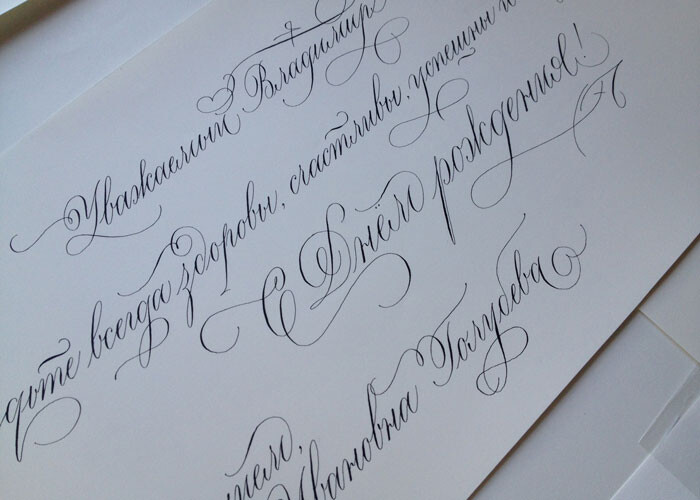 Уважаемый Владимир
дьте всегда здоровы, счастливы, успешны и
С Днём рождения!
тем,
Ивановна Голубева